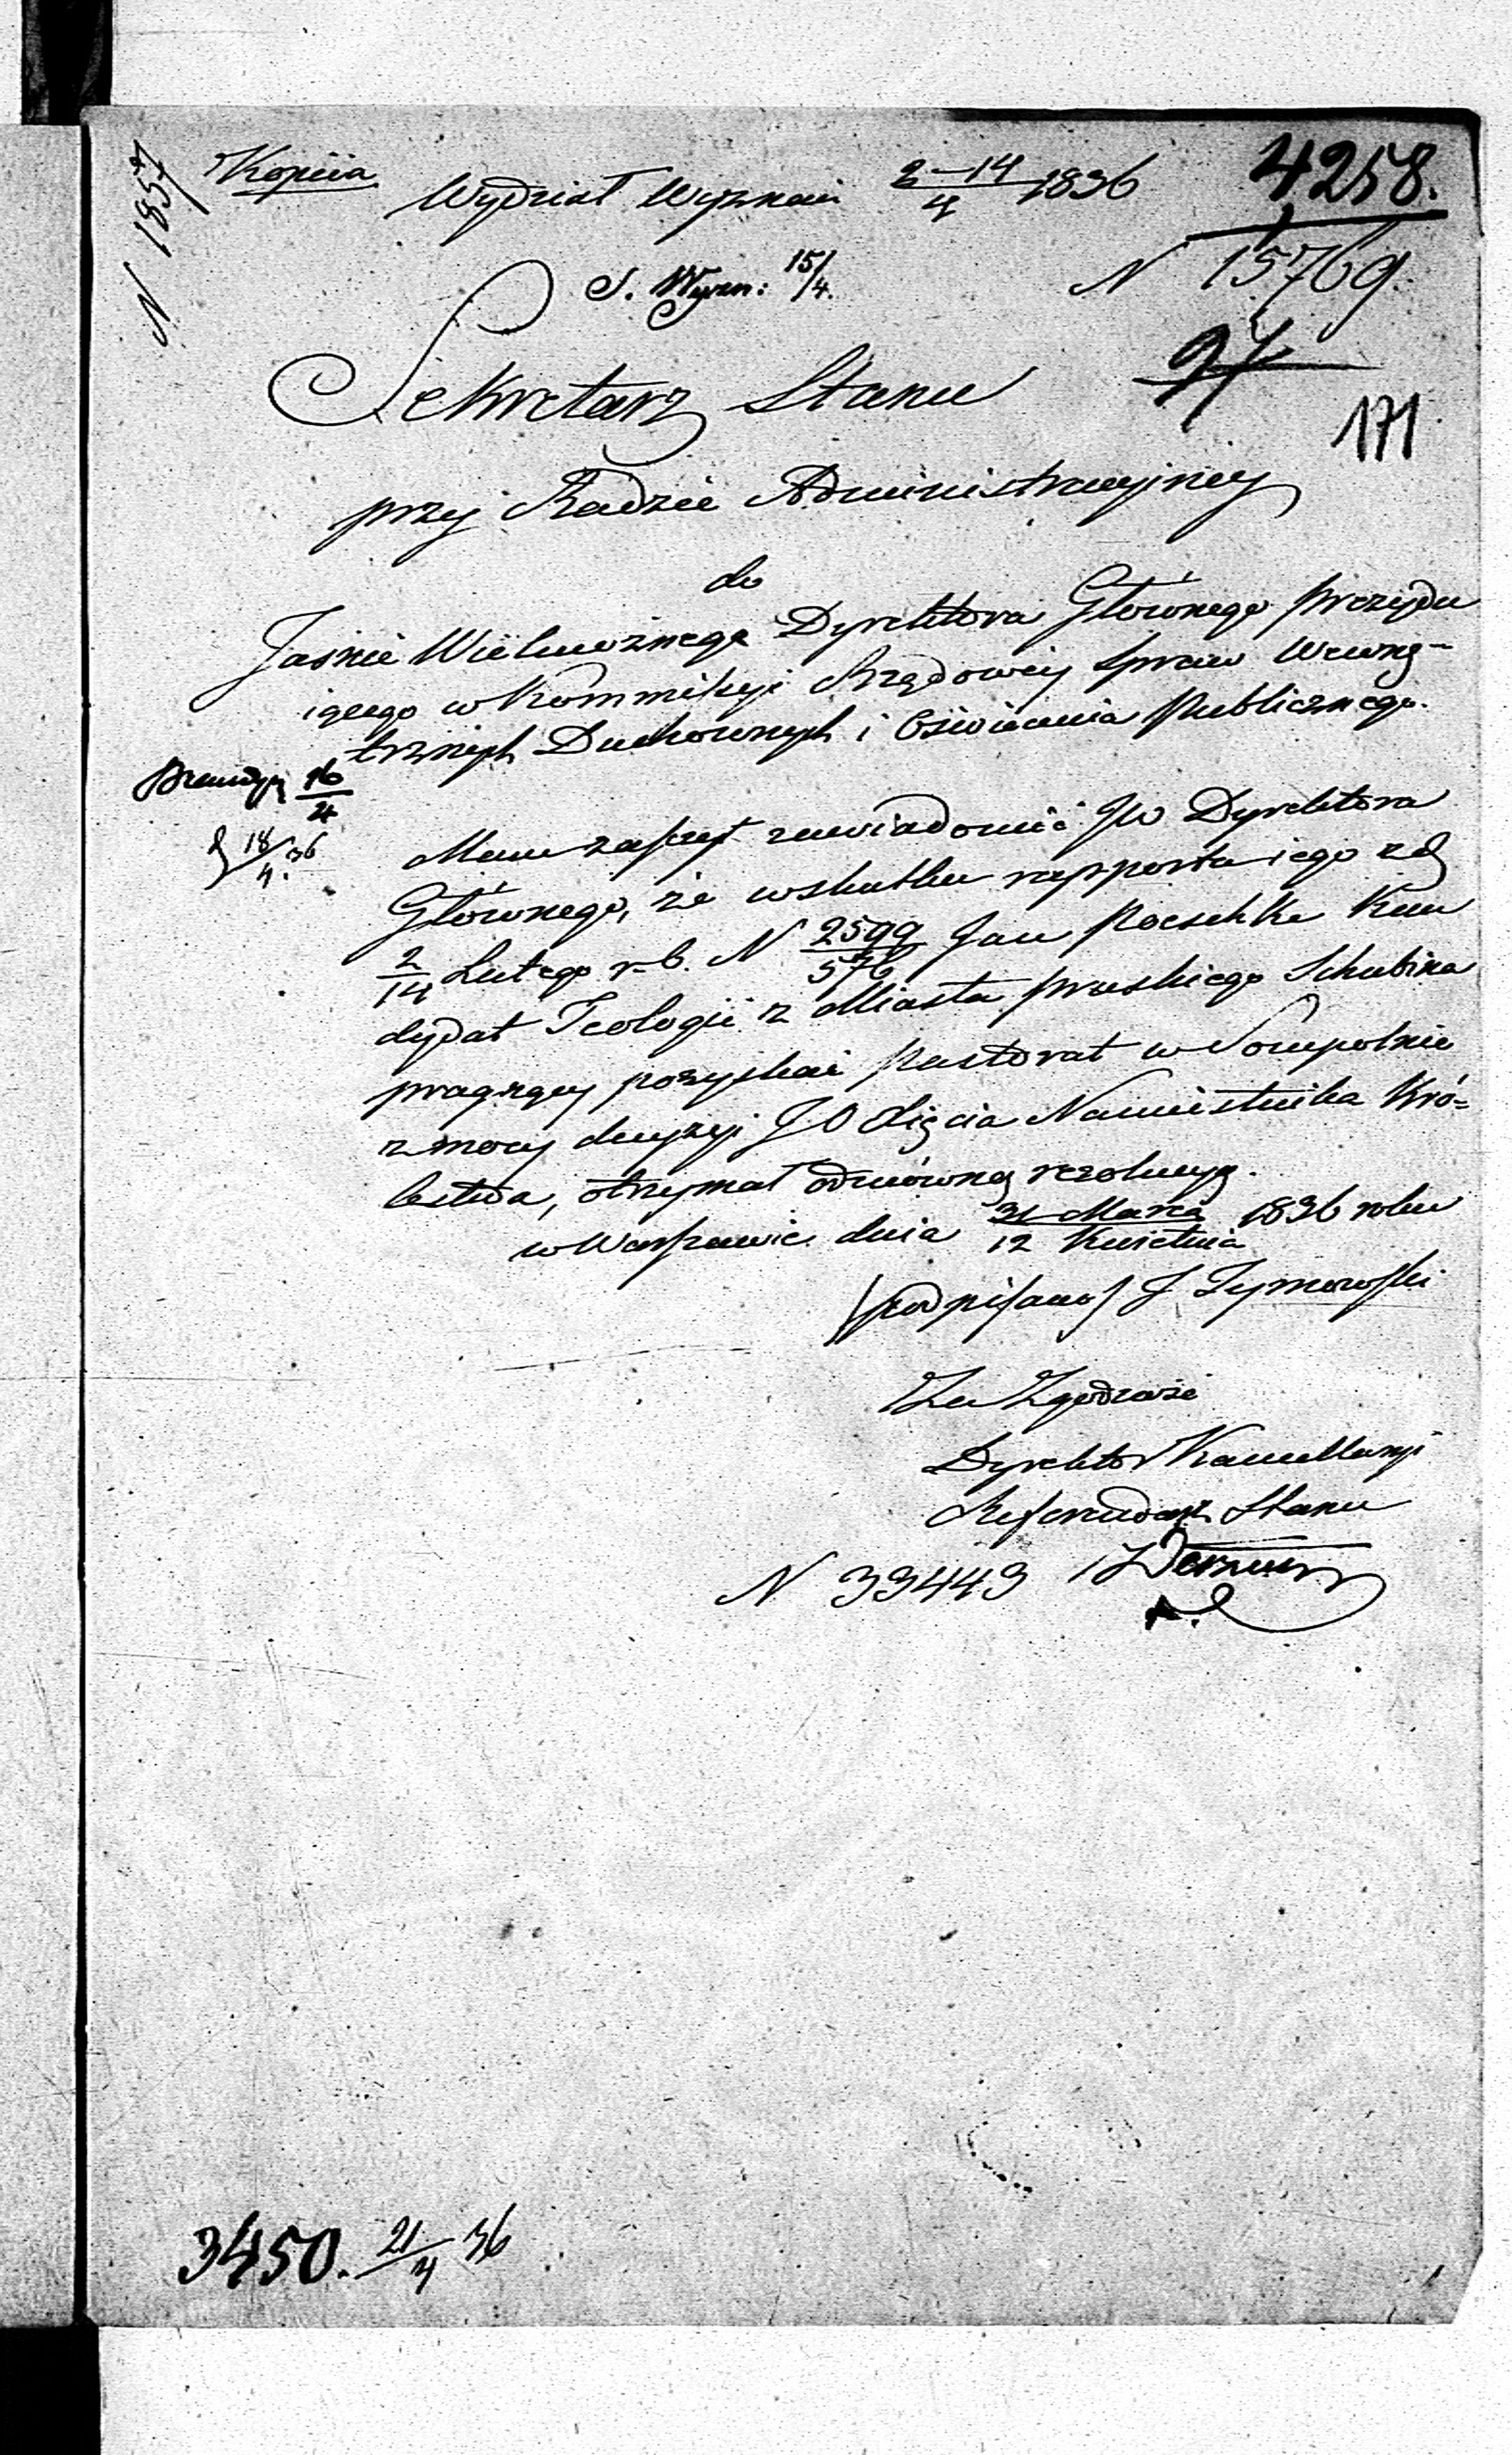 Kopiia
N 1857
Wydział Wyznań 2-14/4 1836
4258.
S. Wyzn: 15/4.
N 15769.
171
Sekretarz Stanu
przy Radzie Administracyjney
do
Jaśnie Wielmożnego Dyrektora Głównego prezydu
iącego w Kommissyi Rządowey Spraw Wewnę-
trznych Duchownych i Oświecenia Publicznego.
16/4
18/4. 36
Mam zaszczyt zawiadomić JW Dyrektora
Głównego, że wskutku rapportu iego z d
2/14 Lutego r. b. N 2599/576 Jan Poeschke Kan
dydat Teologii z Miasta pruskiego Schubina
pragnący pozyskać Pastorat w Sompolnie
z mocy decyzyi JO Xięcia Namiestnika Kró=
lestwa, otrzymał odmówną rezolucyą.
w Warszawie dnia 31 Marca/12 Kwietnia 1836 roku
/podpisano/ J Tymowski
Za Zgodność
Dyrektor Kancellaryi
Referendarz Stanu
N 33443
3450. 21/4 36